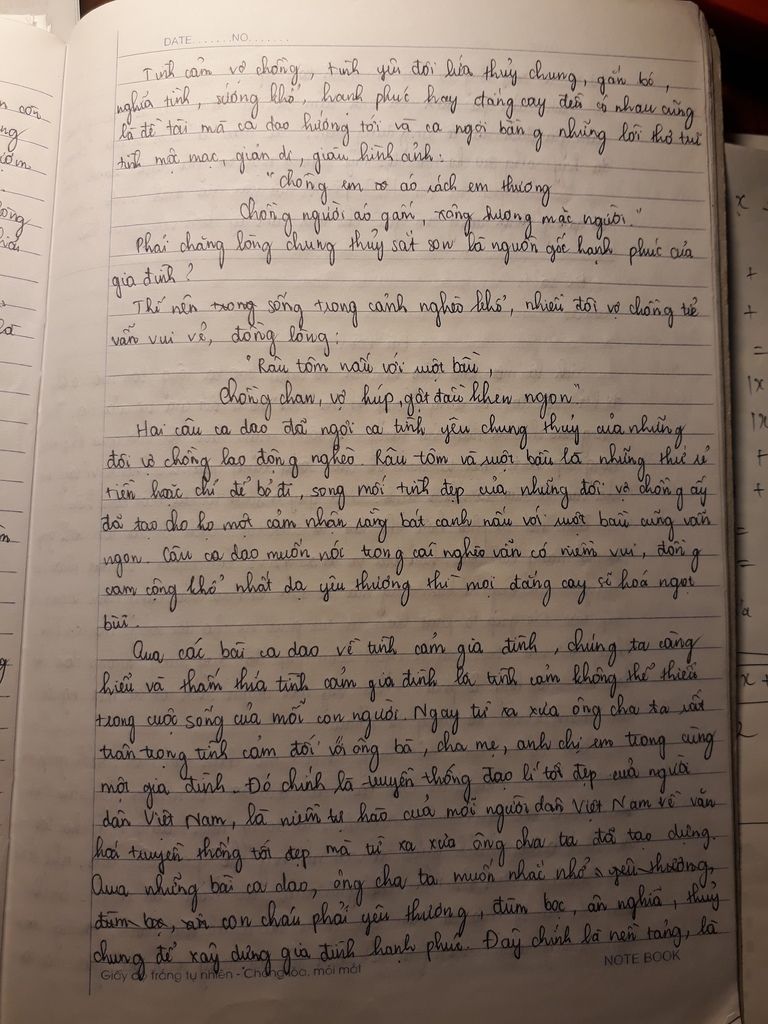 DATE.......NO........
Tình cảm vợ chồng, tình yêu đôi lứa thủy chung, gắn bó,
nghĩa tình, sướng khổ, hạnh phúc hay đắng cay đều có nhau cũng
là đề tài mà ca dao hướng tới và ca ngợi bằng những lời thơ trữ
tình mộc mạc, giản dị, giàu hình ảnh:
"Chồng em áo rách em thương
Chồng người áo gấm, xông hương mặc người."
Phải chăng lòng chung thủy sắt son là nguồn gốc hạnh phúc của
gia đình?
Thế nên trong sống trong cảnh nghèo khổ, nhiều đôi vợ chồng trẻ
vẫn vui vẻ, đồng lòng:
"Râu tôm nấu với ruột bầu,
Chồng chan, vợ húp, gật đầu khen ngon".
Hai câu ca dao đã ngợi ca tình yêu chung thủy của những
đôi vợ chồng lao động nghèo. Râu tôm và ruột bầu là những thứ rẻ
tiền hoặc chỉ để bỏ đi, song mối tình đẹp của những đôi vợ chồng ấy
đã tạo cho họ một cảm nhận rằng bát canh nấu với ruột bầu cũng vẫn
ngon. Câu ca dao muốn nói trong cái nghèo vẫn có niềm vui, đồng
cam cộng khổ nhất dạ yêu thương thì mọi đắng cay sẽ hoá ngọt
bùi.
Qua các bài ca dao về tình cảm gia đình, chúng ta càng
hiểu và thấm thía tình cảm gia đình là tình cảm không thể thiếu
trong cuộc sống của mỗi con người. Ngay từ xa xưa ông cha ta rất
trân trọng tình cảm đối với ông bà, cha mẹ, anh chị em trong cùng
một gia đình. Đó chính là truyền thống đạo lí tốt đẹp của người
dân Việt Nam, là niềm tự hào của mỗi người dân Việt Nam về văn
hoá truyền thống tốt đẹp mà từ xa xưa ông cha ta đã tạo dựng.
Qua những bài ca dao, ông cha ta muốn nhắc nhở yêu thương,
đùm bọc, con cháu phải yêu thương, đùm bọc, ân nghĩa, thuỷ
chung để xây dựng gia đình hạnh phúc. Đây chính là nền tảng, là
Giấy độ trắng tự nhiên - Chống lóa, mỏi mắt
NOTE BOOK